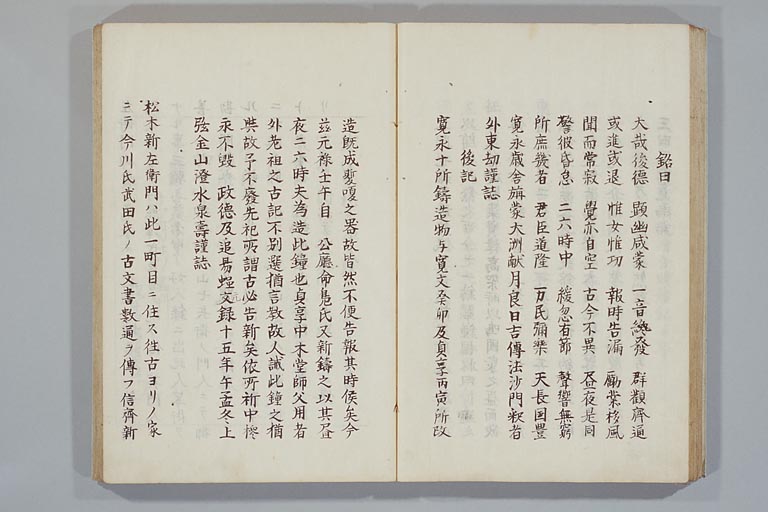 銘曰
大哉後德　顕幽咸蒙　一音纔發　群觀齊通
或進或退　惟女惟功　報時告漏　勵業移風
聞而常寂　覺亦自空　古今不異　昼夜是同
警彼昏怠　二六時中　緩忽有節　聲響無窮
所庶幾者　君臣道隆　万民彌楽　天長国豊
寛永歳舎旃蒙大洲献月良日吉傳法沙門釈者
外東劫謹誌
後記
寛永十所鋳造物与寛文癸卯及貞享丙寅所改
造既成嗄之器故皆然不便告報其時候矣今
茲元祿壬午自　公廳命鳬氏又新鋳之以其昼
夜二六時夫為造此鐘也貞享中木堂師父用者
外先祖之古記不別選猶言教故人識此鐘之猶
典故子不廢先祀所謂古必告新矣依所祈中
永不毀　政德及追易蝗文録十五年午孟冬上
弦金山澄水泉壽謹誌
松木新左衛門ハ此一町目ニ住ス徃古ヨリノ家
ニテ今川氏武田氏ノ古文書數通ヲ傳フ信齊新